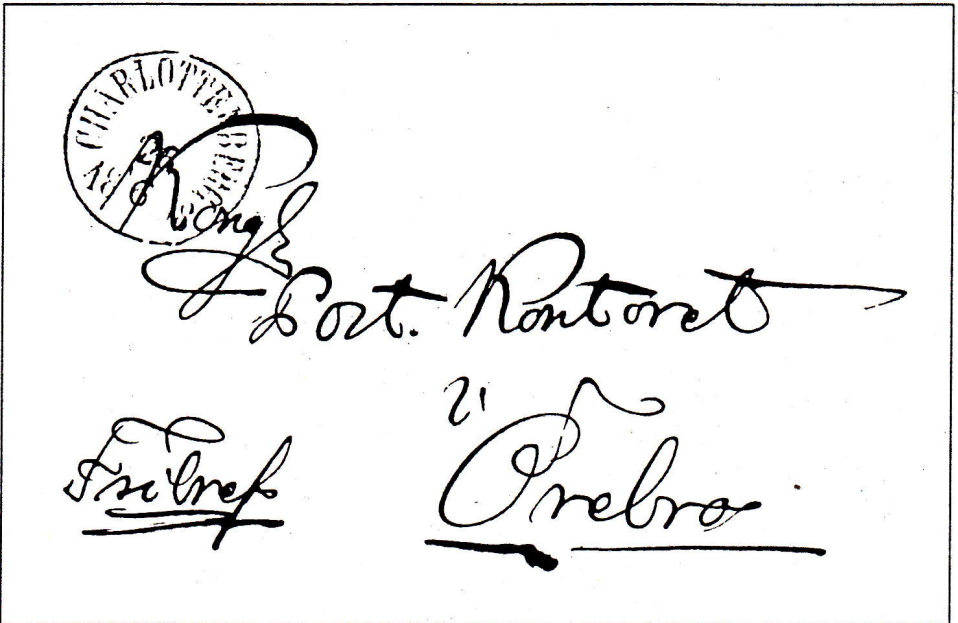 BY CHARLOTTENBERG
Kongl
Post. Kontoret
i
Fribref
Örebro